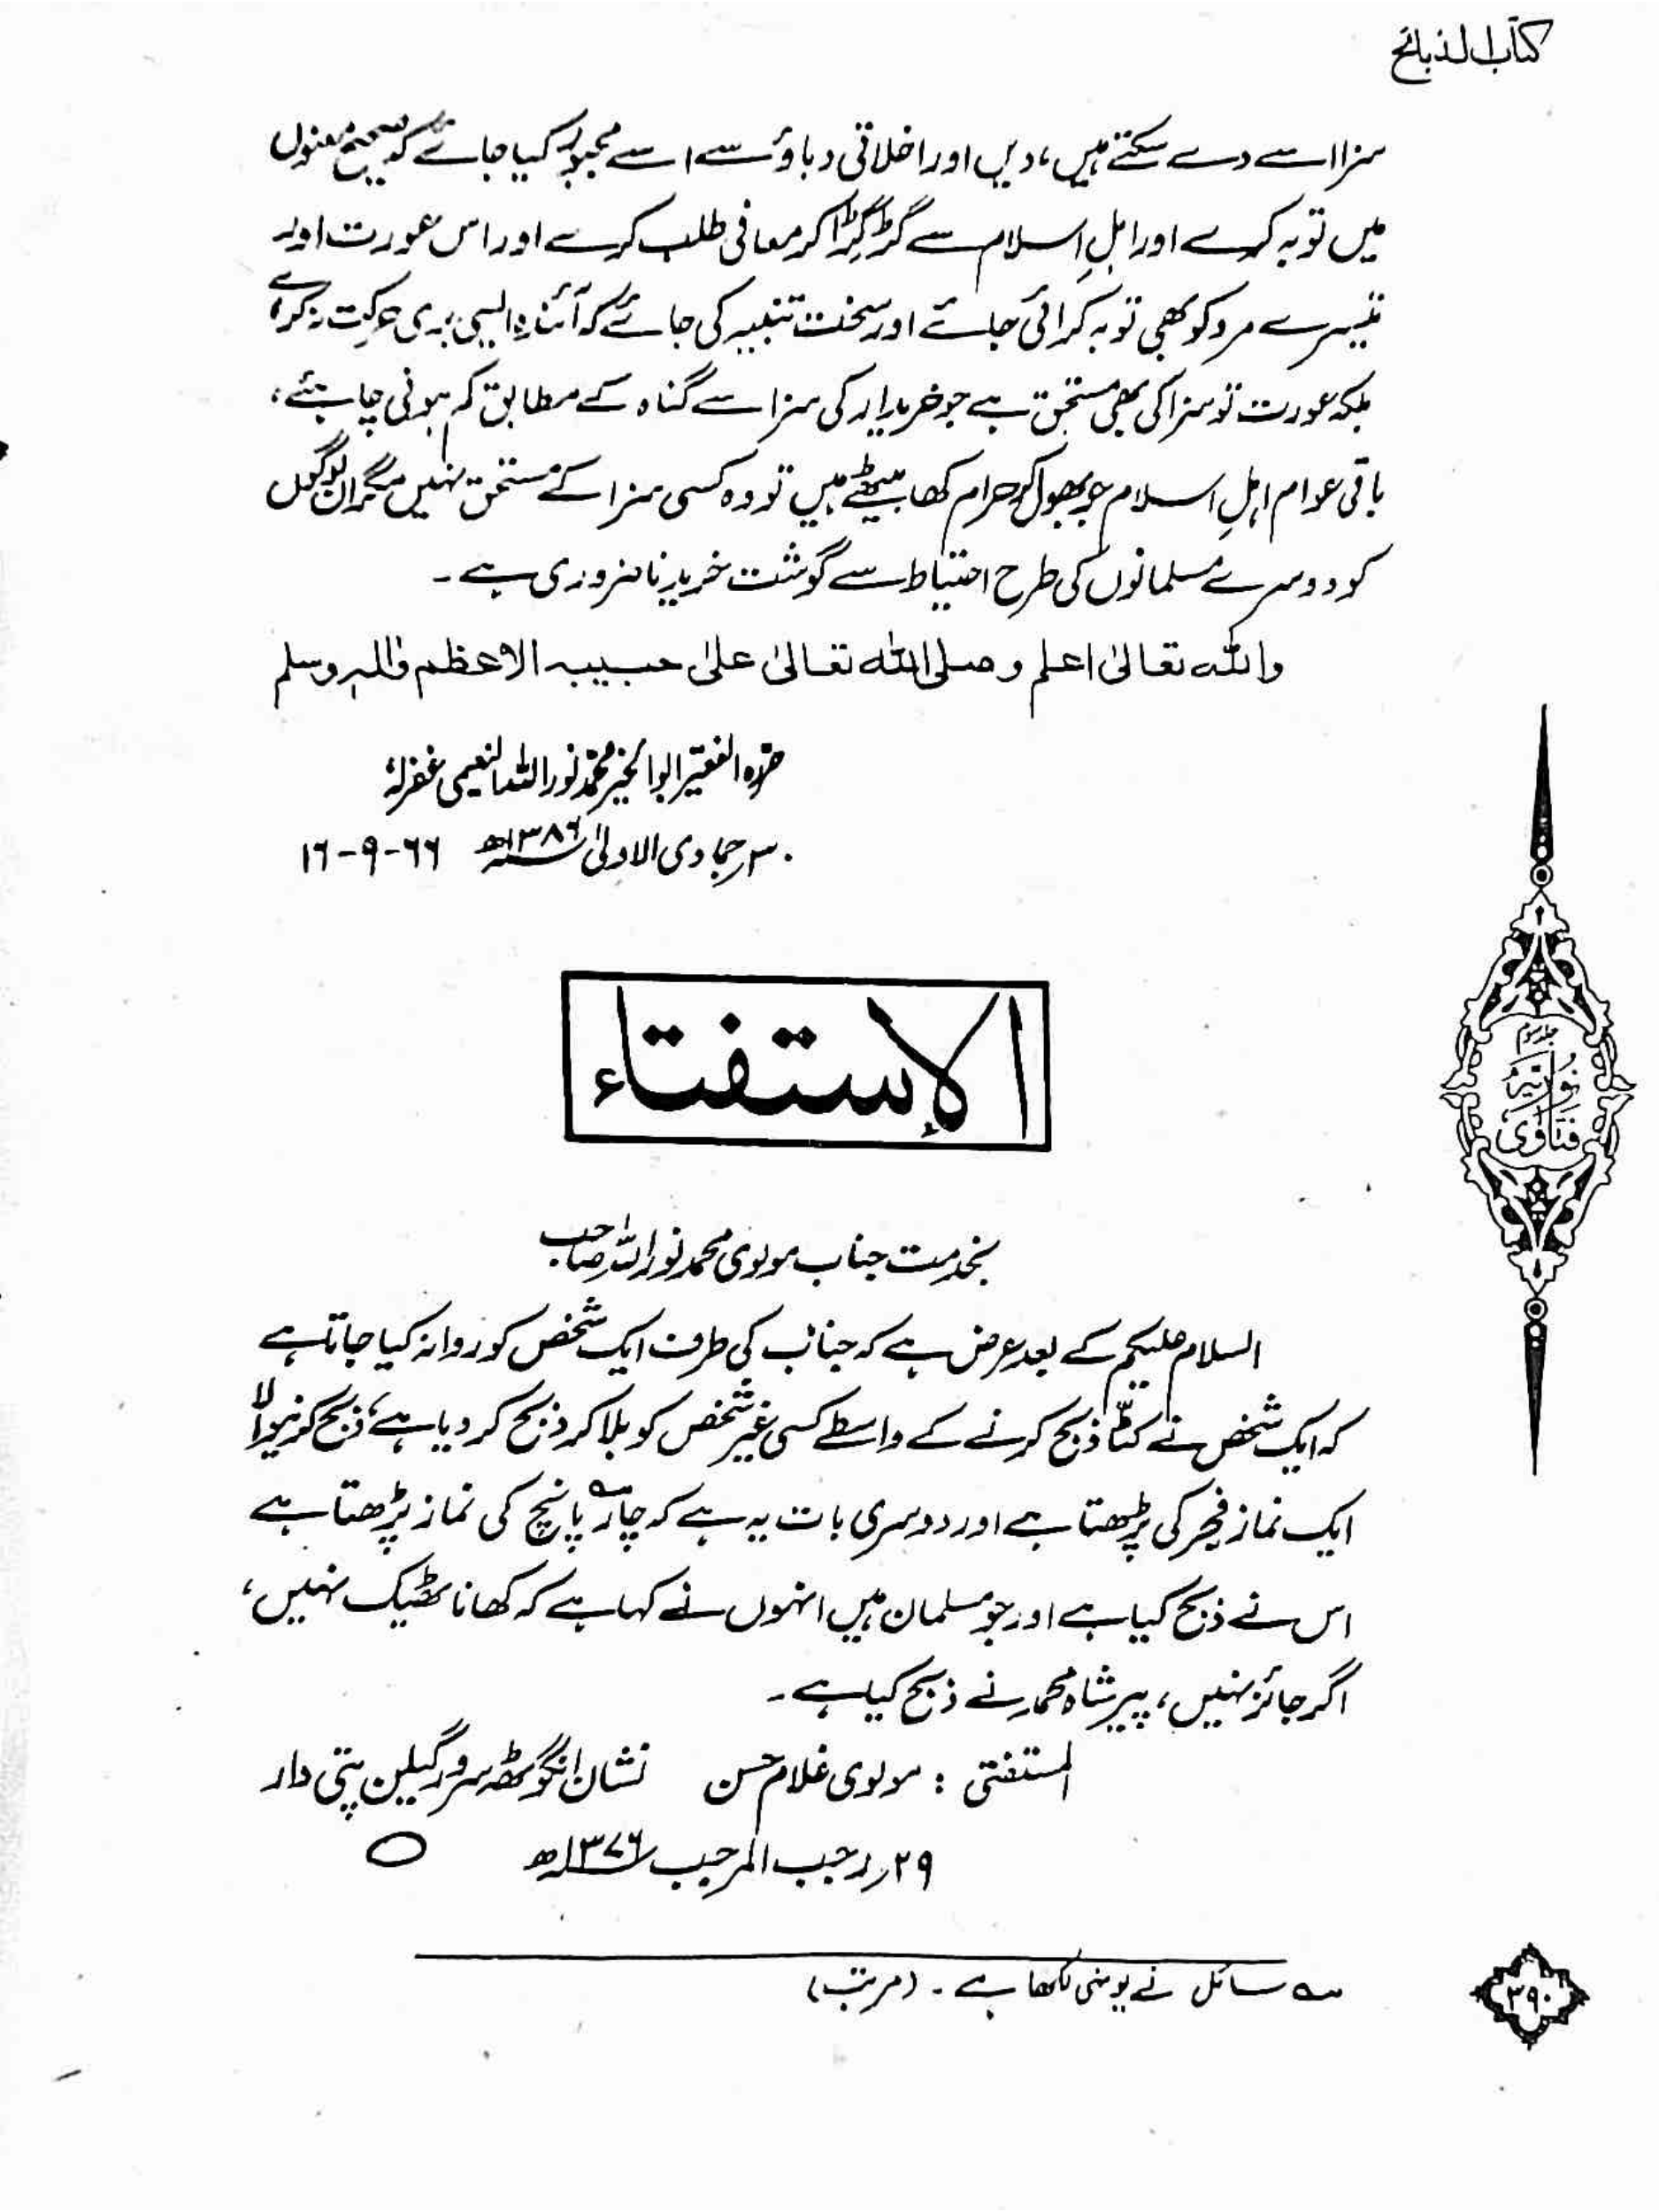 کتاب الذبائح
سزا اسے دے سکتے ہیں، دیں اور اخلاقی دباؤ سے اسے مجبور کیا جائے کہ صحیح معنوں
میں توبہ کرے اور اہلِ اسلام سے گڑگڑا کر معافی طلب کرے اور اس عورت اور
تیسرے مرد کو بھی توبہ کرائی جائے اور سخت تنبیہ کی جائے کہ آئندہ ایسی بری حرکت نہ کرے
بلکہ عورت تو سزا کی بھی مستحق ہے جو خریدار کی سزا سے گناہ کے مطابق کم ہونی چاہئے،
باقی عوام اہلِ اسلام جو بھول کر حرام کھا بیٹھے ہیں تو وہ کسی سزا کے مستحق نہیں مگر ان لوگوں
کو دوسرے مسلمانوں کی طرح احتیاط سے گوشت خریدنا ضروری ہے۔
واللہ تعالیٰ اعلم وصلی اللہ تعالیٰ علیٰ حبیبہ الاعظم واٰلہٖ وسلم
حررہ الفقیر ابو الخیر محمد نور اللہ النعیمی غفرلہٗ
۳۰ر جمادی الاولیٰ ۱۳۸۶ھ ۶۶-۹-۱۶
الإستفتاء
جلد سوم
نوریہ
فتاوٰی
بخدمت جناب مولوی محمد نور اللہ صاحب
السلام علیکم کے بعد عرض ہے کہ جناب کی طرف ایک شخص کو روانہ کیا جاتا ہے
کہ ایک شخص نے کٹا ذبح کرنے کے واسطے کسی غیر شخص کو بلا کر ذبح کر دیا ہے، ذبح کرنیوالا
ایک نماز فجر کی پڑھتا ہے اور دوسری بات یہ ہے کہ چار؂ پانچ کی نماز پڑھتا ہے
اس نے ذبح کیا ہے اور جو مسلمان ہیں انہوں نے کہا ہے کہ کھانا ٹھیک نہیں،
اگر جائز نہیں، پیر شاہ محمد نے ذبح کیا ہے۔
المستفتی : مولوی غلام حسن نشان انگوٹھہ سرور گیلن پتی دار
۲۹ر رجب المرجب ۱۳۷۶ھ
؂ سائل نے یونہی لکھا ہے۔ (مرتب)
۳۹۰